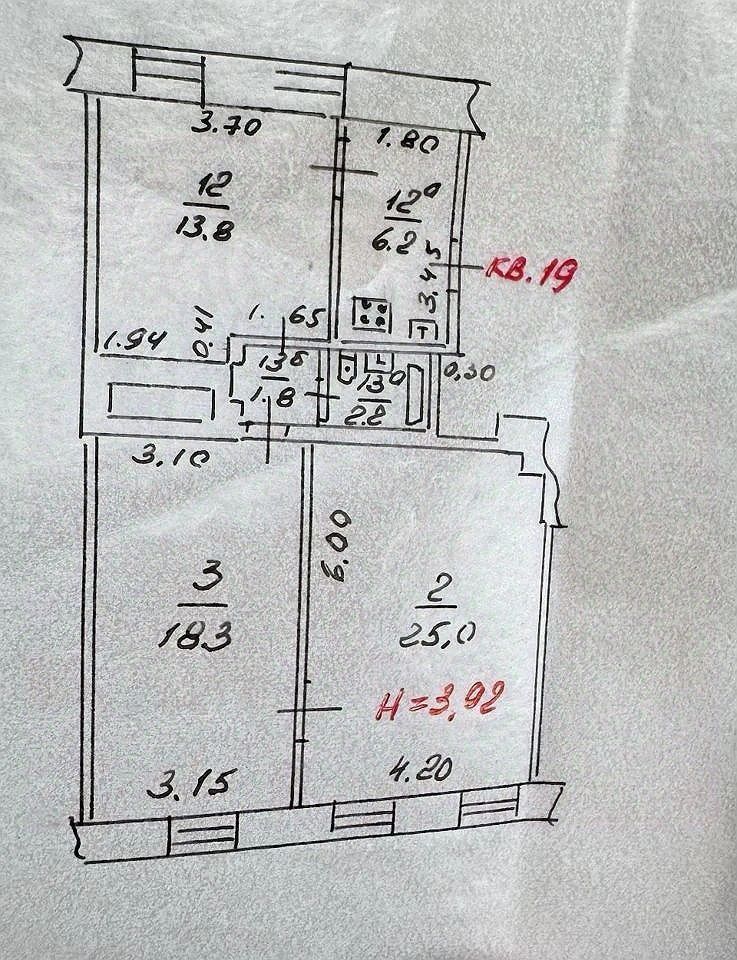 3.70
1.80
12
13.8
12а
6.2
3.45
кв.19
1.65
0.41
1.94
13б
1.8
13а
2.2
0,30
3.10
6.00
3
18.3
2
25,0
Н=3,92
3.15
4.20